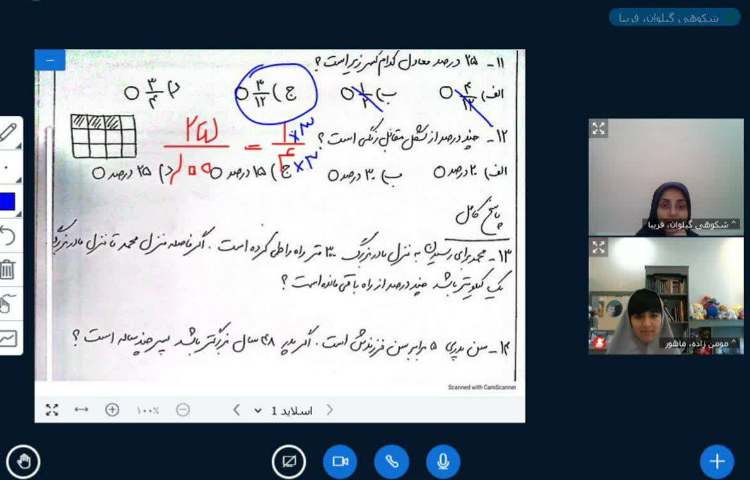 شکوهی گیلوان، فریبا
۱۱- ۲۵ درصد معادل کدام کسر زیر است؟
الف) ۴/۱۲ ب) ۱/۲ ج) ۳/۱۲ د) ۳/۴
۲۵/۱۰۰ = ۱×۳/۴×۳
۱۲- چند درصد از شکل مقابل رنگی است؟
الف) ۲۰ درصد ب) ۳۰ درصد ج) ۱۵ درصد د) ۲۵ درصد
پاسخ کامل
۱۳- محمد برای رسیدن به منزل مادربزرگ ۳۰۰ متر راه را طی کرده است. اگر فاصله منزل محمد تا منزل مادربزرگ
یک کیلومتر باشد چند درصد از راه باقی مانده است؟
۱۴- سن پدری ۵ برابر سن فرزندش است. اگر پدر ۴۸ سال بزرگتر باشد پسر چند ساله است؟
Scanned with CamScanner
۱۰۰% اسلاید 1
شکوهی گیلوان، فریبا
مومن زاده، ماهور